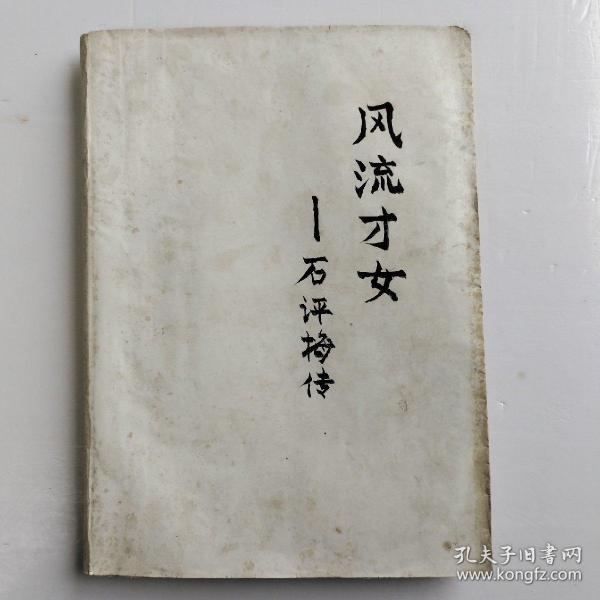 风流才女
—石评梅传
孔夫子旧书网
www.kongfz.com